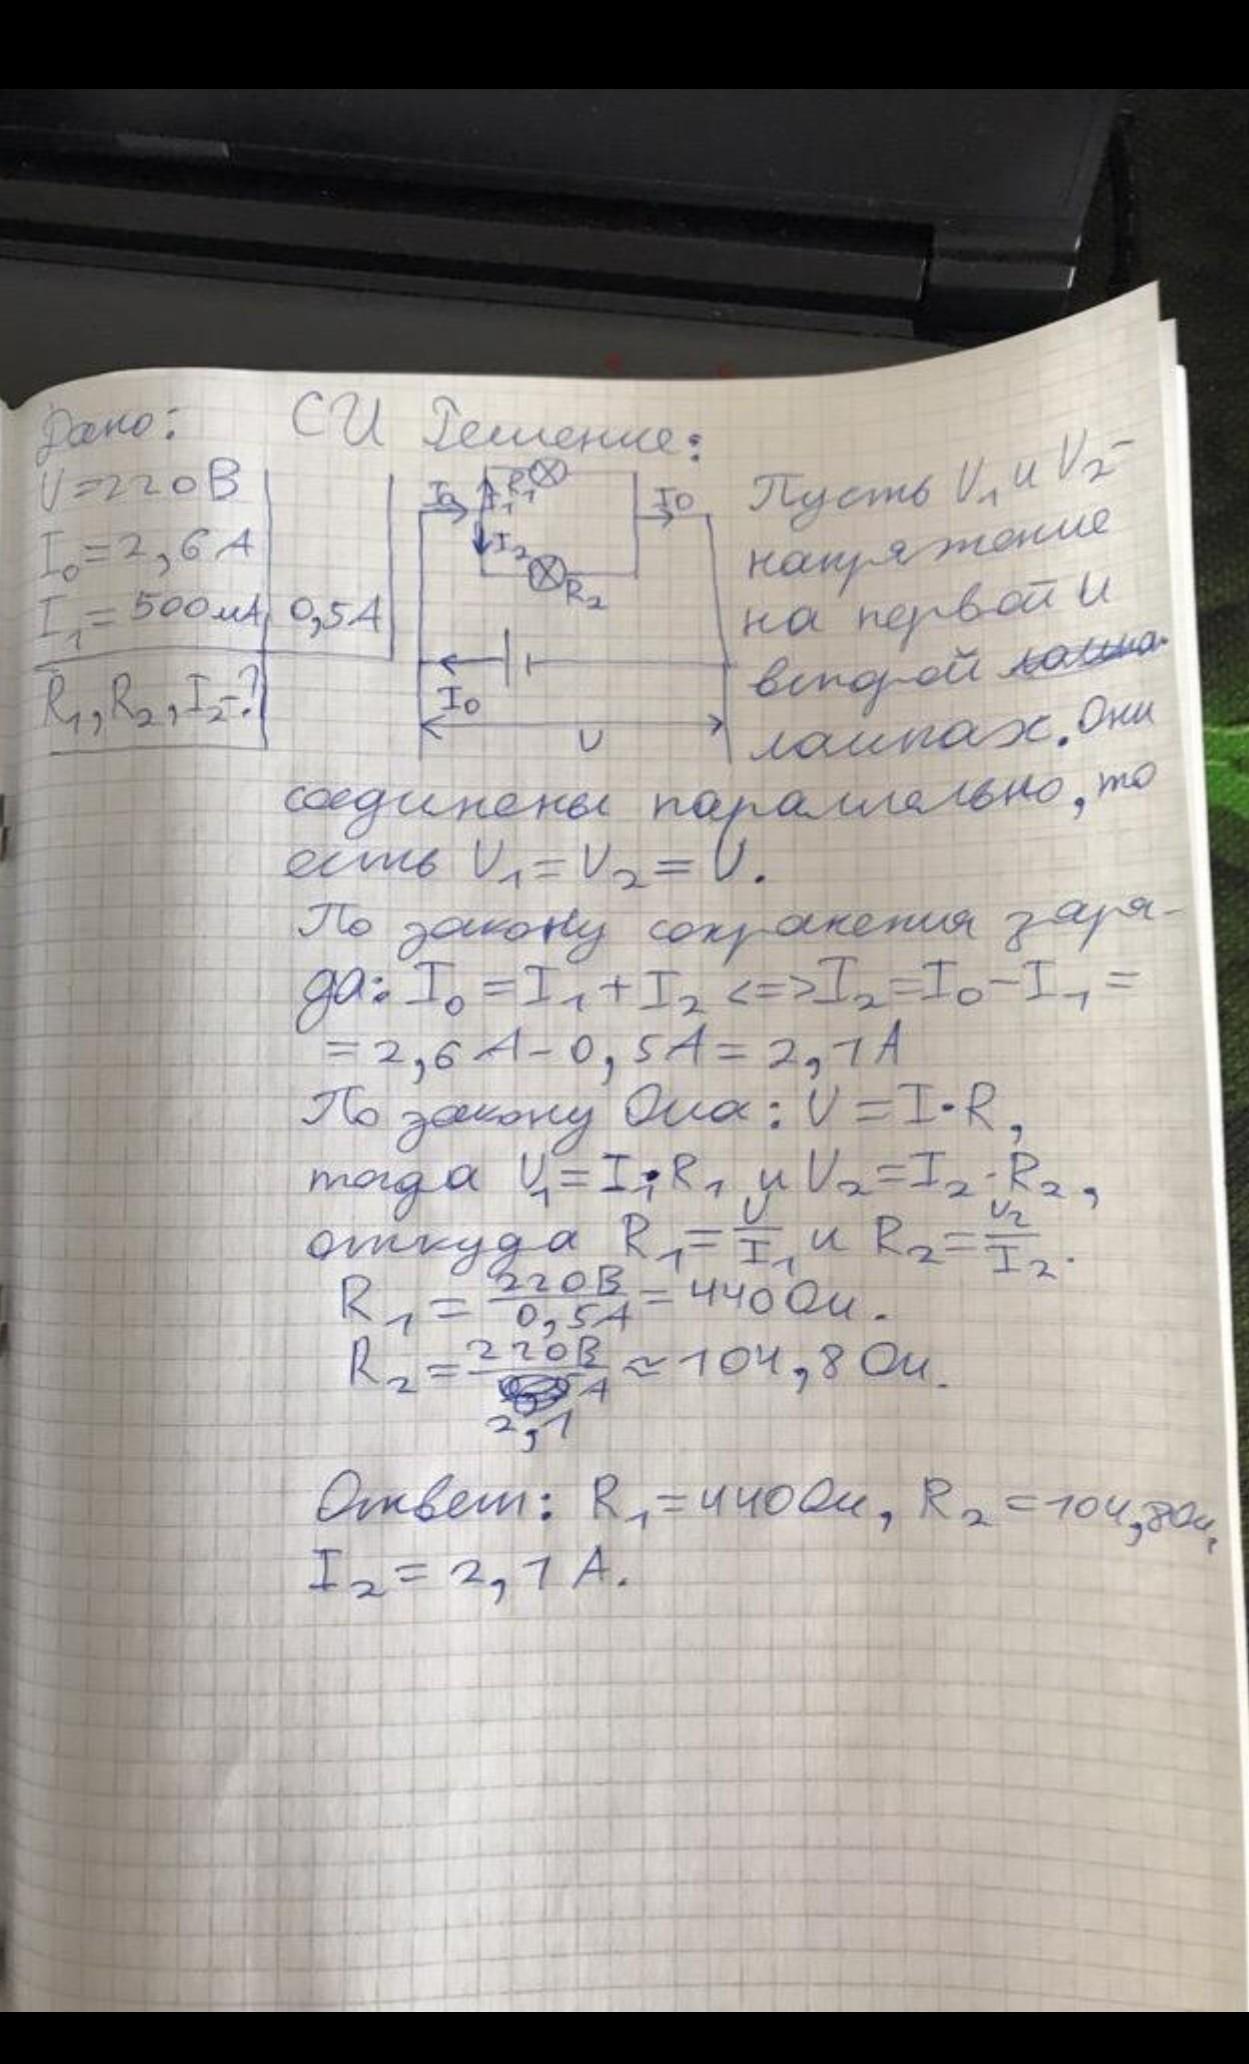 Дано: СИ Решение:
U=220В
I₀=2,6А
I₁=500мА 0,5А
R₁, R₂, I₂-?
I₀ I₁ R₁ I₀
I₂ R₂
I₀
U
Пусть U₁ и U₂-
напряжение
на первой и
второй
лампах. Они
соединены параллельно, то
есть U₁=U₂=U.
По закону сохранения заря-
да: I₀=I₁+I₂<=>I₂=I₀-I₁=
=2,6А-0,5А=2,1А
По закону Ома: U=I·R,
тогда U₁=I₁·R₁ и U₂=I₂·R₂,
откуда R₁=U/I₁ и R₂=U₂/I₂.
R₁=220В/0,5А=440Ом.
R₂=220В/2,1А≈104,8Ом.
Ответ: R₁=440Ом, R₂=104,8Ом,
I₂=2,1А.